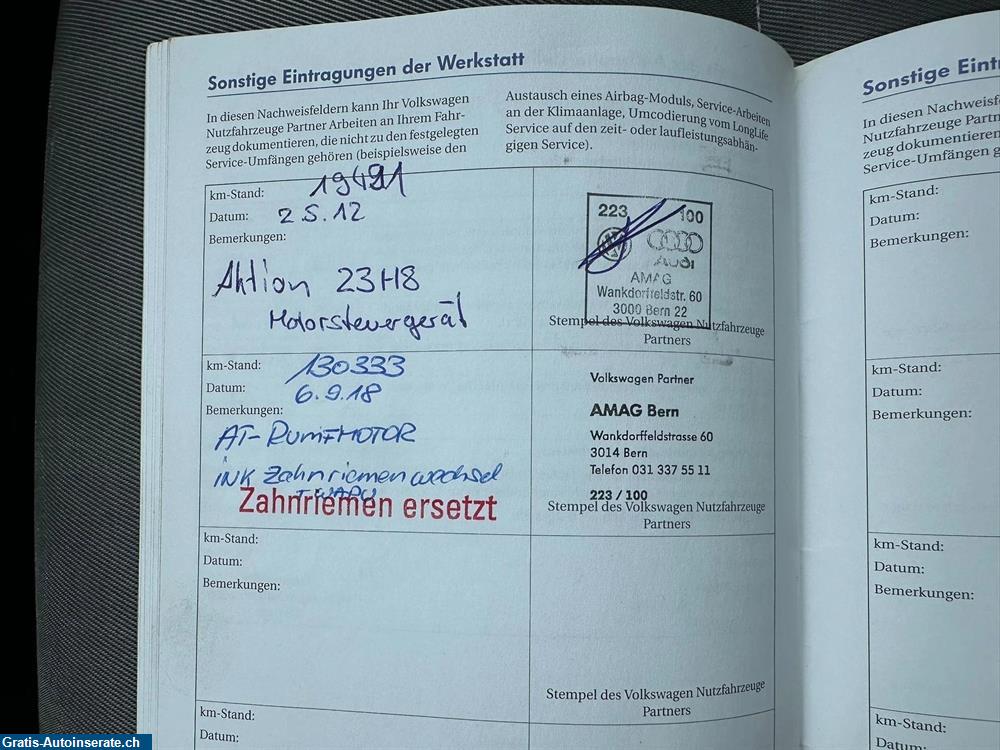 Sonstige Eintragungen der Werkstatt
In diesen Nachweisfeldern kann Ihr Volkswagen
Nutzfahrzeuge Partner Arbeiten an Ihrem Fahr-
zeug dokumentieren, die nicht zu den festgelegten
Service-Umfängen gehören (beispielsweise den
Austausch eines Airbag-Moduls, Service-Arbeiten
an der Klimaanlage, Umcodierung vom LongLife
Service auf den zeit- oder laufleistungsabhän-
gigen Service).
km-Stand: 19491
Datum: 2.5.12
Bemerkungen:
Aktion 23H8
Motorsteuergerät
223 100
AUDI
AMAG
Wankdorffeldstr. 60
3000 Bern 22
Stempel des Volkswagen Nutzfahrzeuge
Partners
km-Stand: 130333
Datum: 6.9.18
Bemerkungen:
AT-RUMPFMOTOR
INK Zahnriemenwechsel
+ WAPU
Zahnriemen ersetzt
Volkswagen Partner
AMAG Bern
Wankdorffeldstrasse 60
3014 Bern
Telefon 031 337 55 11
223 / 100
Stempel des Volkswagen Nutzfahrzeuge
Partners
km-Stand:
Datum:
Bemerkungen:
Stempel des Volkswagen Nutzfahrzeuge
Partners
km-Stand:
Datum:
Sonstige Eint
In diesen Nachweisf
Nutzfahrzeuge Partn
zeug dokumentieren
Service-Umfängen g
km-Stand:
Datum:
Bemerkungen:
km-Stand:
Datum:
Bemerkungen:
km-Stand:
Datum:
Bemerkungen:
km-Stand:
Datum:
Gratis-Autoinserate.ch